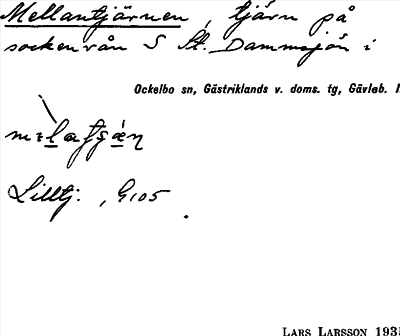 Mellantjärnen, tjärn på
sockenrån S St. Dammsjön i
Ockelbo sn, Gästriklands v. doms. tg, Gävleb.
Lilltj. , G105
LARS LARSSON 193